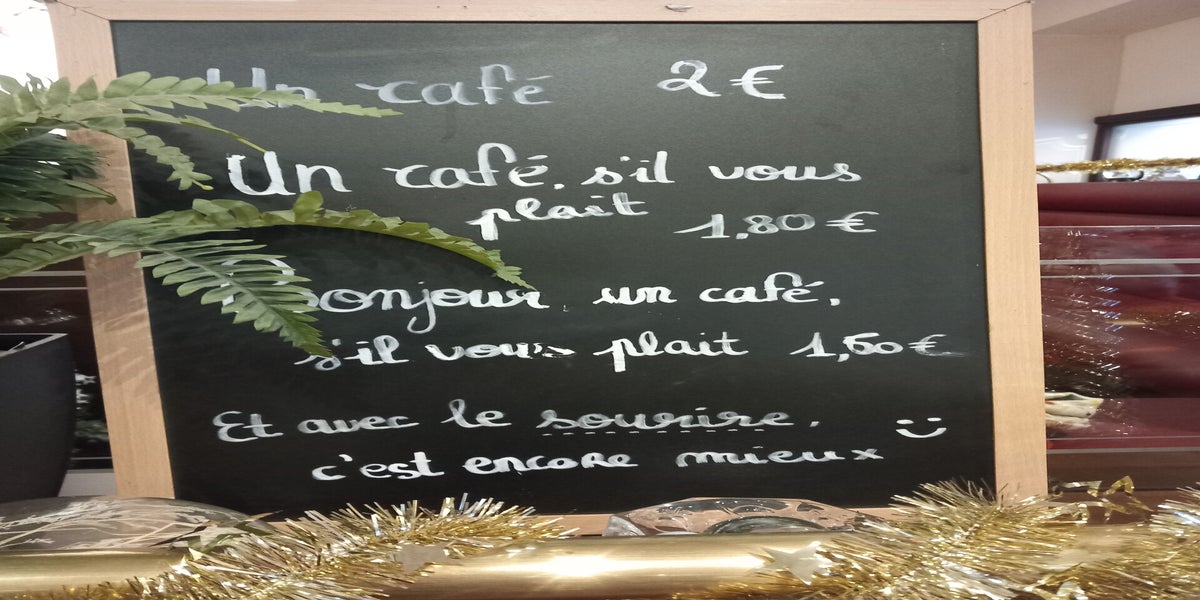 Un café 2 €
Un café, s'il vous
plait 1,80 €
Bonjour, un café,
s'il vous plait 1,50 €
Et avec le sourire, :)
c'est encore mieux